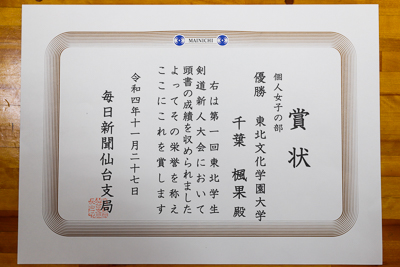 MAINICHI
賞状
個人女子の部
優勝 東北文化学園大学
千葉 楓果 殿
右は第一回東北学生
剣道新人大会において
頭書の成績を収められました
よってその栄誉を称え
ここにこれを賞します
令和四年十一月二十七日
毎日新聞仙台支局